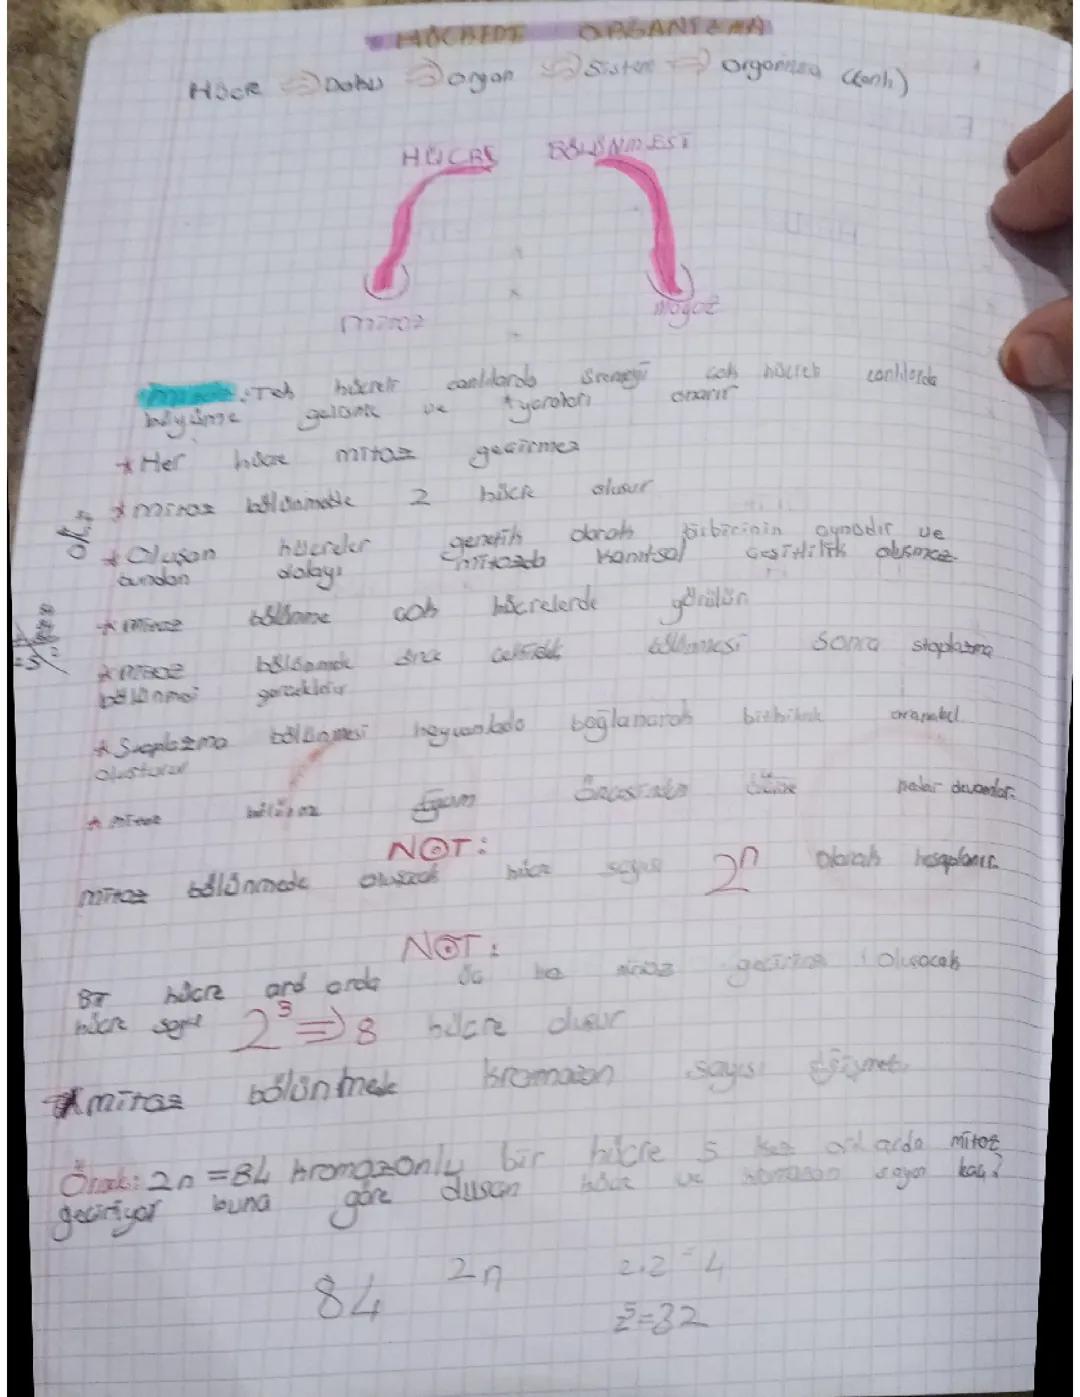 HÜCREDE ORGANİZMA
Hücre => Doku => organ => Sistem => organizma (canlı)
HÜCRE BÖLÜNMESİ
mitoz mayoz
mitoz : Tek hücreli canlılarda üremeyi çok hücreli canlılarda
büyüme gelişme ve yaraları onarır
* Her hücre mitoz geçirmez
* mitoz bölünmede 2 hücre oluşur
* Oluşan hücreler genetik olarak birbirinin aynıdır ve
bundan dolayı mitozda kalıtsal çeşitlilik oluşmaz.
* mitoz bölünme çok hücrelerde görülür
* mitoz bölünmede önce çekirdek bölünmesi sonra stoplazma
bölünmesi gerçekleşir
* Stoplazma bölünmesi hayvanlarda boğlanarak bitkilerde arapabel
oluşturur
* mitoz yaşam ölüne kadar devamlar.
NOT:
mitoz bölünmede oluşacak hücre sayısı 2ⁿ olarak hesaplanır.
NOT:
Bir hücre ard arda üç kez mitoz geçirirse oluşacak
hücre sayısı 2³ => 8 hücre olusur
* mitoz bölünmede kromozon sayısı değişmez.
Örnek: 2n = 84 kromozonlu bir hücre 5 kez ard arda mitoz
geçiriyor buna göre olusan hücre ve kromozon sayısı kaç?
84 2n 2.2=4
=32